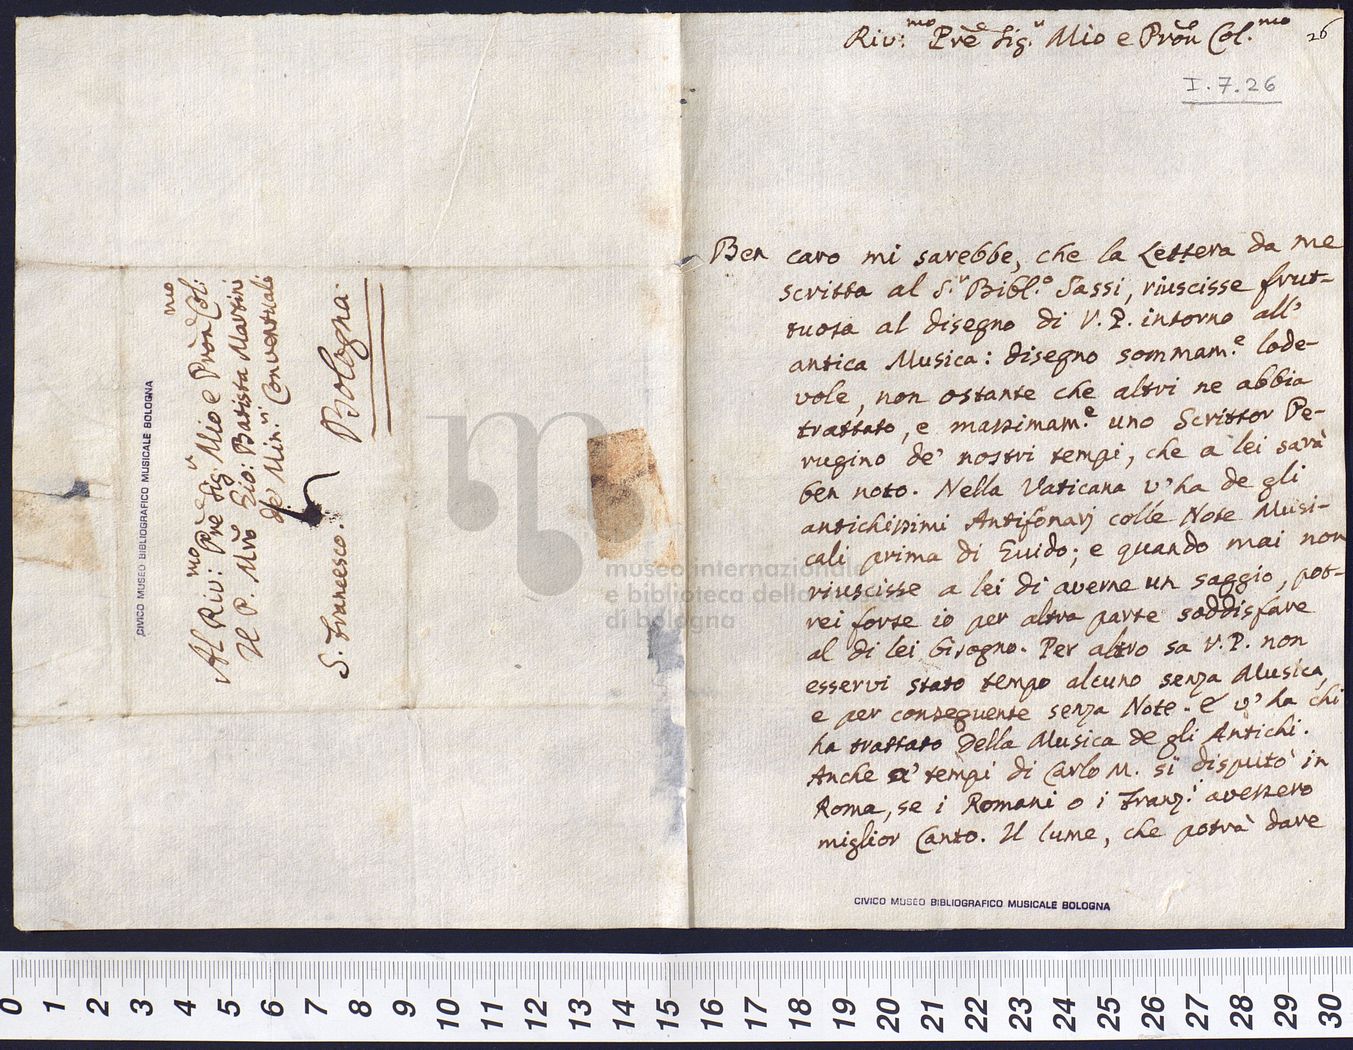 Al Riv:mo Pre Sig.r Mio e Pron Col:mo
Il P. Mro Gio: Batista Martini
de' Min.ri Conventuali
S. Francesco.
Bologna.
CIVICO MUSEO BIBLIOGRAFICO MUSICALE BOLOGNA
Riv:mo Pre Sig.r Mio e Pron Col.mo
26
I.7.26
Ben caro mi sarebbe, che la Lettera da me
scritta al S.r Bibl.o Sassi, riuscisse frut-
tuosa al disegno di V.P. intorno all'
antica Musica: disegno sommam.e lode-
vole, non ostante che altri ne abbia
trattato, e massimam.e uno Scrittor Pe-
rugino de' nostri tempi, che a lei sarà
ben noto. Nella Vaticana v'ha de gli
antichissimi Antifonarj colle Note Musi-
cali prima di Guido; e quando mai non
riuscisse a lei di averne un saggio, pot-
rei forse io per altra parte soddisfare
al di lei bisogno. Per altro sa V.P. non
esservi stato tempo alcuno senza Musica,
e per conseguente senza Note. E v'ha chi
ha trattato della Musica de gli Antichi.
Anche a' tempi di Carlo M. si disputò in
Roma, se i Romani o i Franz.i avessero
miglior Canto. Il lume, che potrà dare
CIVICO MUSEO BIBLIOGRAFICO MUSICALE BOLOGNA
museo internazionale
e biblioteca della
di bologna
0 1 2 3 4 5 6 7 8 9 10 11 12 13 14 15 16 17 18 19 20 21 22 23 24 25 26 27 28 29 30